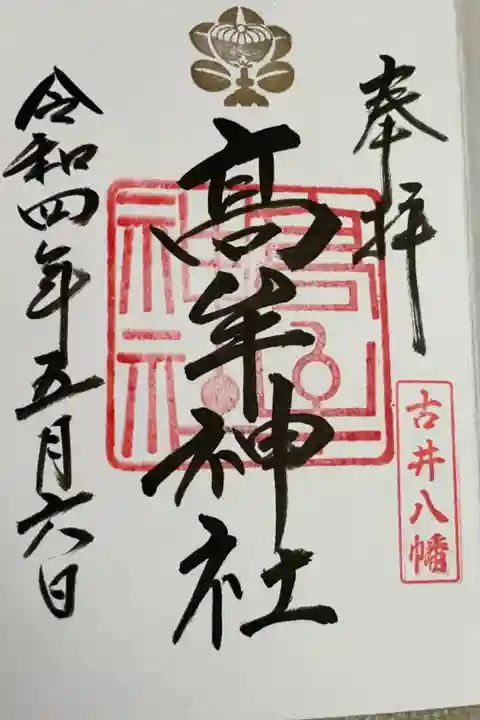 奉拝
古井八幡
髙牟神社
令和四年五月六日